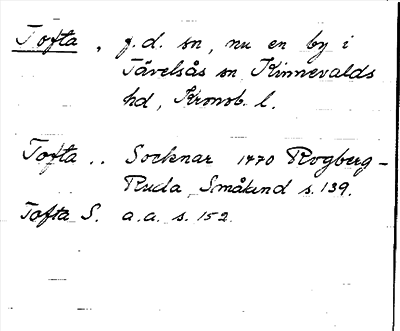 Tofta, f.d. sn, nu en by i
Tävelsås sn Kinnevalds
hd, Kronob. l.
Tofta .. Socknar 1770 Rogberg-
Ruda, Småland s. 139.
Tofta S. a.a. s. 152.